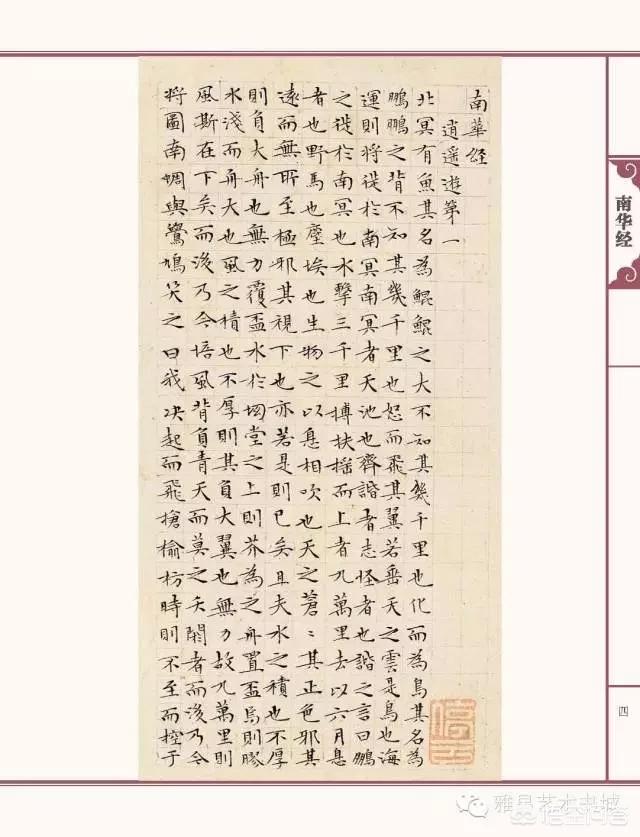 南華經
逍遙遊第一
北冥有魚其名為鯤鯤之大不知其幾千里也化而為鳥其名為
鵬鵬之背不知其幾千里也怒而飛其翼若垂天之雲是鳥也海
運則將徙於南冥南冥者天池也齊諧者志怪者也諧之言曰鵬
之徙於南冥也水擊三千里摶扶搖而上者九萬里去以六月息
者也野馬也塵埃也生物之以息相吹也天之蒼〻其正色邪其
遠而無所至極邪其視下也亦若是則已矣且夫水之積也不厚
則負大舟也無力覆盃水於坳堂之上則芥為之舟置盃焉則膠
水淺而舟大也風之積也不厚則其負大翼也無力故九萬里則
風斯在下矣而後乃今培風背負青天而莫之夭閼者而後乃今
將圖南蜩與鷽鳩笑之曰我決起而飛搶榆枋時則不至而控于
停雲
南华经
四
雅昌艺术书城
悟空问答